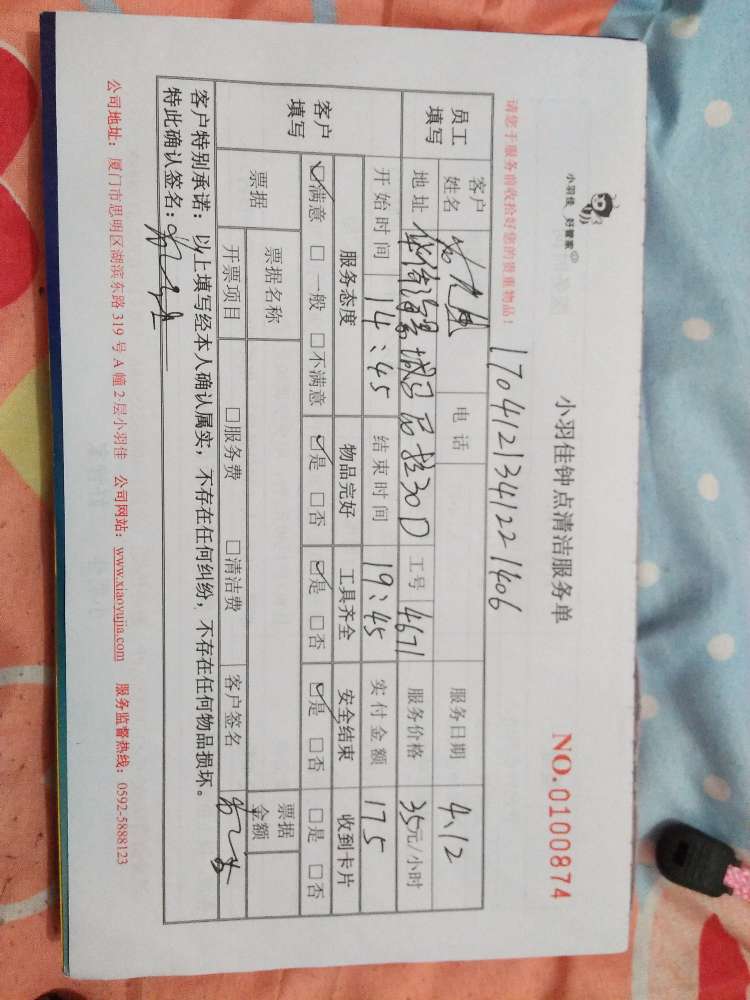 小羽佳 好管家
小羽佳钟点清洁服务单
NO.0100874
请您于服务前收拾好您的贵重物品！
1704121341221406
员工填写
客户姓名
电话
服务日期 4.12
地址 城 30D
工号 4671
服务价格 35元/小时
开始时间 14:45
结束时间 19:45
实付金额 175
客户填写
服务态度 物品完好 工具齐全 安全结束 收到卡片
☑满意 □一般 □不满意 ☑是 □否 ☑是 □否 ☑是 □否 □是 □否
票据
票据名称
票据金额
开票项目 □服务费 □清洁费 客户签名
客户特别承诺：以上填写经本人确认属实，不存在任何纠纷，不存在任何物品损坏。
特此确认签名：
公司地址：厦门市思明区湖滨东路 319 号 A 幢 2 层小羽佳 公司网站：www.xiaoyujia.com 服务监督热线：0592-5888123